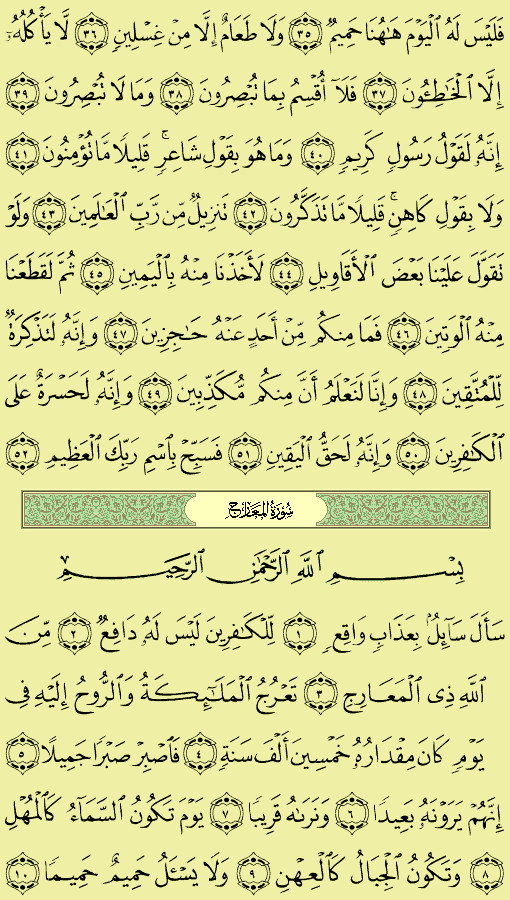 فَلَيْسَ لَهُ ٱلْيَوْمَ هَٰهُنَا حَمِيمٌ ٣٥ وَلَا طَعَامٌ إِلَّا مِنْ غِسْلِينٍ ٣٦ لَّا يَأْكُلُهُۥٓ
إِلَّا ٱلْخَٰطِـُٔونَ ٣٧ فَلَآ أُقْسِمُ بِمَا تُبْصِرُونَ ٣٨ وَمَا لَا تُبْصِرُونَ ٣٩
إِنَّهُۥ لَقَوْلُ رَسُولٍ كَرِيمٍ ٤٠ وَمَا هُوَ بِقَوْلِ شَاعِرٍ ۚ قَلِيلًا مَّا تُؤْمِنُونَ ٤١
وَلَا بِقَوْلِ كَاهِنٍ ۚ قَلِيلًا مَّا تَذَكَّرُونَ ٤٢ تَنزِيلٌ مِّن رَّبِّ ٱلْعَٰلَمِينَ ٤٣ وَلَوْ
تَقَوَّلَ عَلَيْنَا بَعْضَ ٱلْأَقَاوِيلِ ٤٤ لَأَخَذْنَا مِنْهُ بِٱلْيَمِينِ ٤٥ ثُمَّ لَقَطَعْنَا
مِنْهُ ٱلْوَتِينَ ٤٦ فَمَا مِنكُم مِّنْ أَحَدٍ عَنْهُ حَٰجِزِينَ ٤٧ وَإِنَّهُۥ لَتَذْكِرَةٌ
لِّلْمُتَّقِينَ ٤٨ وَإِنَّا لَنَعْلَمُ أَنَّ مِنكُم مُّكَذِّبِينَ ٤٩ وَإِنَّهُۥ لَحَسْرَةٌ عَلَى
ٱلْكَٰفِرِينَ ٥٠ وَإِنَّهُۥ لَحَقُّ ٱلْيَقِينِ ٥١ فَسَبِّحْ بِٱسْمِ رَبِّكَ ٱلْعَظِيمِ ٥٢
سُورَةُ المَعَارِج
بِسْمِ ٱللَّهِ ٱلرَّحْمَٰنِ ٱلرَّحِيمِ
سَأَلَ سَآئِلٌۢ بِعَذَابٍ وَاقِعٍ ١ لِّلْكَٰفِرِينَ لَيْسَ لَهُۥ دَافِعٌ ٢ مِّنَ
ٱللَّهِ ذِى ٱلْمَعَارِجِ ٣ تَعْرُجُ ٱلْمَلَٰٓئِكَةُ وَٱلرُّوحُ إِلَيْهِ فِى
يَوْمٍ كَانَ مِقْدَارُهُۥ خَمْسِينَ أَلْفَ سَنَةٍ ٤ فَٱصْبِرْ صَبْرًا جَمِيلًا ٥
إِنَّهُمْ يَرَوْنَهُۥ بَعِيدًا ٦ وَنَرَىٰهُ قَرِيبًا ٧ يَوْمَ تَكُونُ ٱلسَّمَآءُ كَٱلْمُهْلِ
٨ وَتَكُونُ ٱلْجِبَالُ كَٱلْعِهْنِ ٩ وَلَا يَسْـَٔلُ حَمِيمٌ حَمِيمًا ١٠